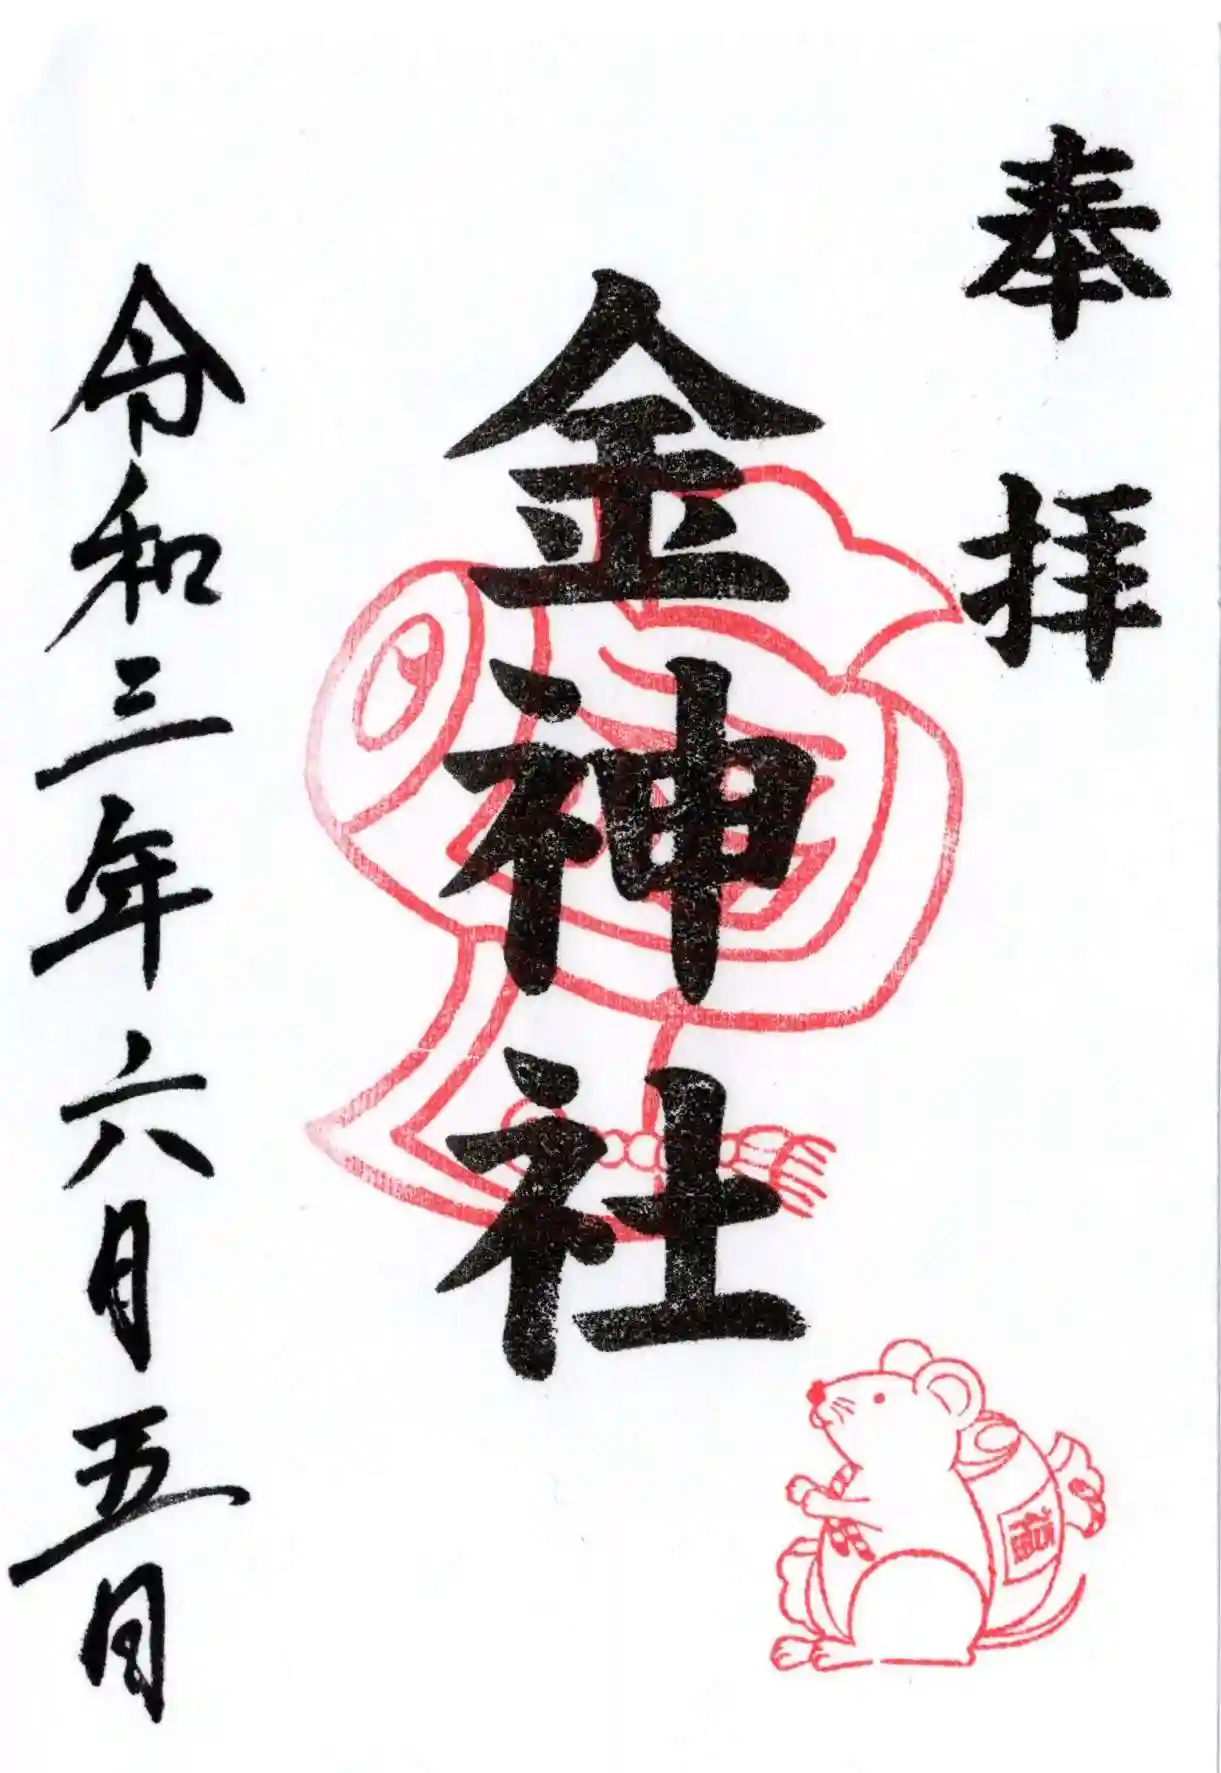 奉拝
金神社
令和三年六月五日
福